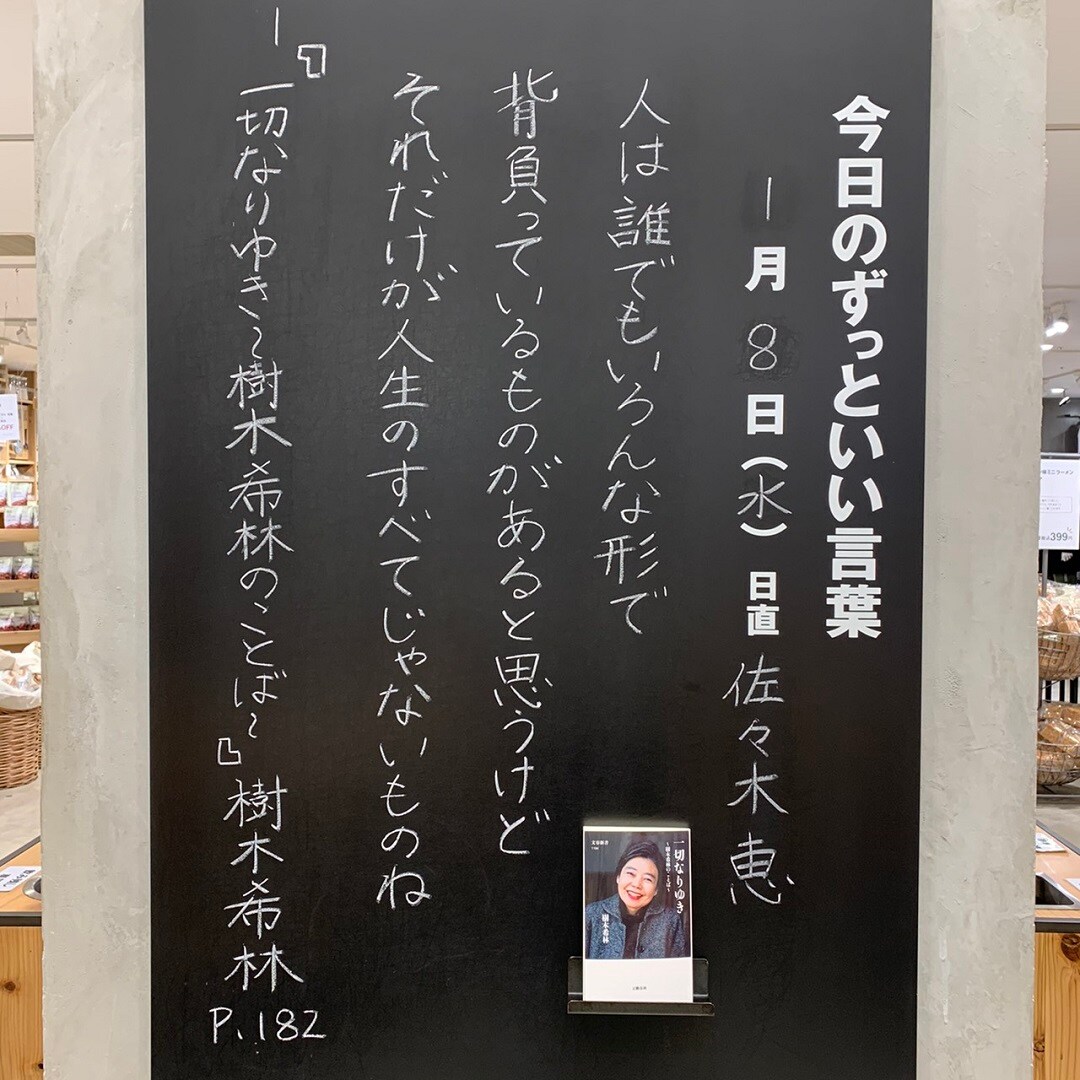 今日のずっといい言葉
1月8日(水) 日直 佐々木恵
人は誰でもいろんな形で
背負っているものがあると思うけど
それだけが人生のすべてじゃないものね
―『一切なりゆき〜樹木希林のことば〜』樹木希林
P.182
文春新書
一切なりゆき
〜樹木希林のことば〜
樹木希林
OFF
399円